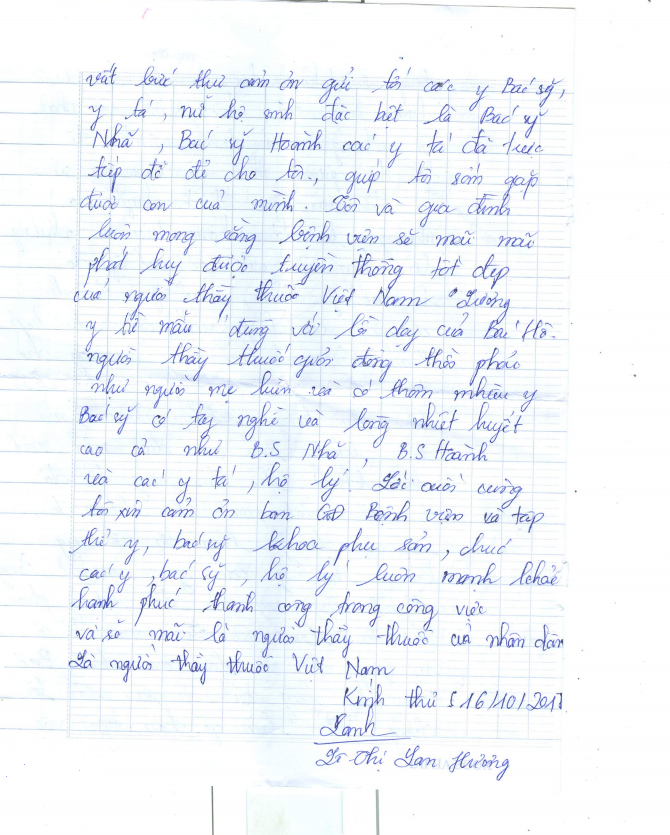 viết bức thư cảm ơn gửi tới các y Bác sỹ,
y tá, nữ hộ sinh đặc biệt là Bác sỹ
Nhã, Bác sỹ Hoành các y tá đã trực
tiếp đỡ đẻ cho tôi, giúp tôi sớm gặp
được con của mình. Tôi và gia đình
luôn mong rằng bệnh viện sẽ mãi mãi
phát huy được truyền thống tốt đẹp
của người thầy thuốc Việt Nam "Lương
y từ mẫu" đúng với lời dạy của Bác Hồ.
người thầy thuốc giỏi đồng thời phải
như người mẹ hiền và có thêm nhiều y
Bác sỹ có tay nghề và lòng nhiệt huyết
cao cả như B.S Nhã, B.S Hoành
và các y tá, hộ lý. Lời cuối cùng
tôi xin cảm ơn ban GĐ Bệnh viện và tập
thể y, bác sỹ khoa phụ sản, chúc
các y, bác sỹ, hộ lý luôn mạnh khỏe
hạnh phúc thành công trong công việc
và sẽ mãi là người thầy thuốc của nhân dân
Là người thầy thuốc Việt Nam
Kính thư 16/10/2017
Lanh
Thị Lan Hương